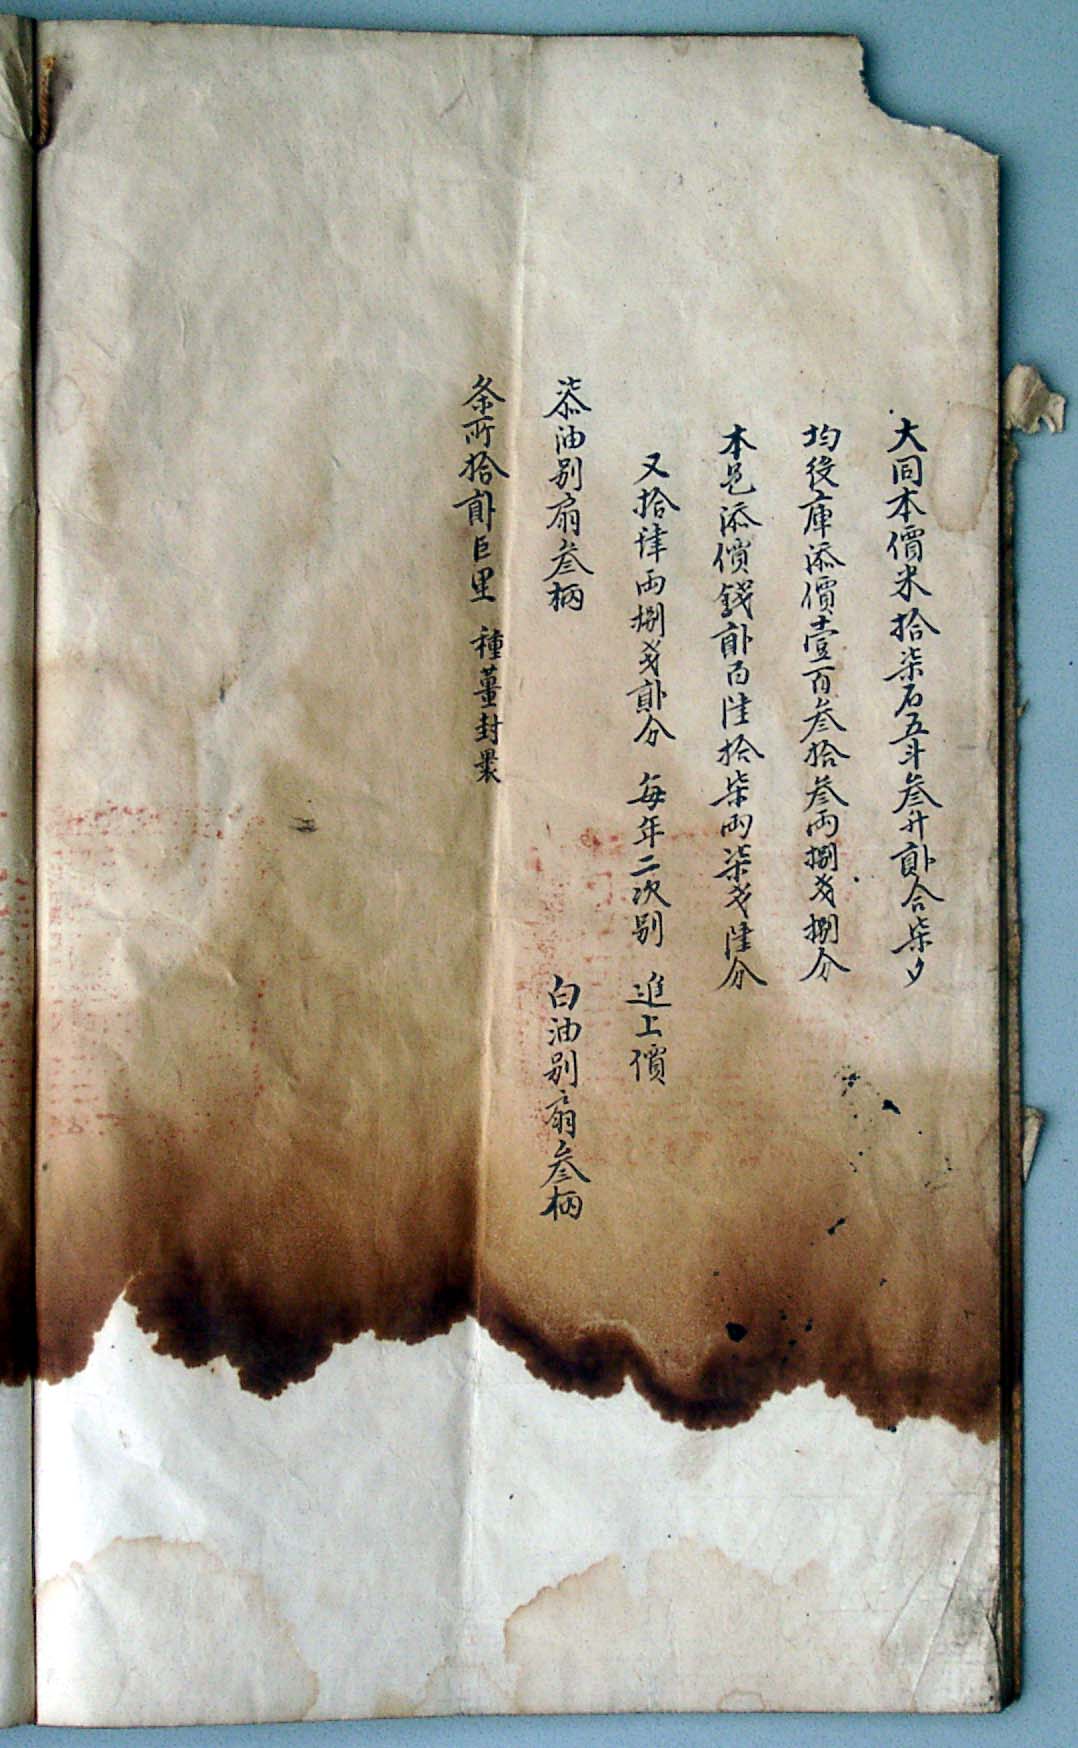 大同本價米拾柒石五斗叄升貳合柒夕
均役庫添價壹百叄拾叄兩捌戔捌分
本邑添價錢貳百陸拾柒兩柒戔陸分
又拾肆兩捌戔貳分 每年二次別 進上價
柒油別扇叄柄 白油別扇叄柄
条所拾貳巨里 種薑封裹